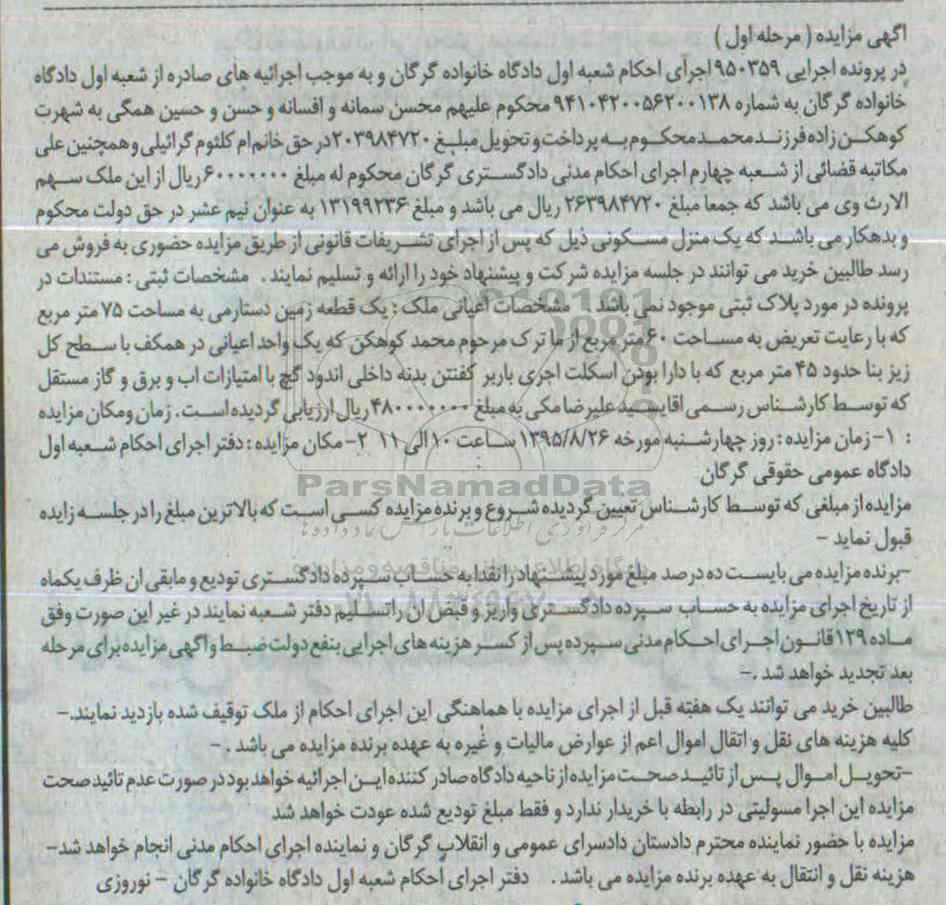 آگهی مزایده ( مرحله اول )
در پرونده اجرایی ۹۵۰۳۵۹ اجرای احکام شعبه اول دادگاه خانواده گرگان و به موجب اجرائیه های صادره از شعبه اول دادگاه
خانواده گرگان به شماره ۹۴۱۰۴۲۰۰۵۶۲۰۰۱۳۸ محکوم علیهم محسن سمانه و افسانه و حسن و حسین همگی به شهرت
کوهکن زاده فرزند محمد محکوم به پرداخت و تحویل مبلغ ۲۰۳۹۸۴۷۲۰ در حق خانم ام کلثوم گرائیلی و همچنین علی
مکاتبه قضائی از شعبه چهارم اجرای احکام مدنی دادگستری گرگان محکوم له مبلغ ۶۰۰۰۰۰۰۰ ریال از این ملک سهم
الارث وی می باشد که جمعا مبلغ ۲۶۳۹۸۴۷۲۰ ریال می باشد و مبلغ ۱۳۱۹۹۲۳۶ به عنوان نیم عشر در حق دولت محکوم
و بدهکار می باشد که یک منزل مسکونی ذیل که پس از اجرای تشریفات قانونی از طریق مزایده حضوری به فروش می
رسد طالبین خرید می توانند در جلسه مزایده شرکت و پیشنهاد خود را ارائه و تسلیم نمایند . مشخصات ثبتی : مستندات در
پرونده در مورد پلاک ثبتی موجود نمی باشد . مشخصات اعیانی ملک : یک قطعه زمین دستارمی به مساحت ۷۵ متر مربع
که با رعایت تعریض به مساحت ۶۰ متر مربع از ما ترک مرحوم محمد کوهکن که یک واحد اعیانی در همکف با سطح کل
زیز بنا حدود ۴۵ متر مربع که با دارا بودن اسکلت اجری باربر کفنتن بدنه داخلی اندود گچ با امتیازات اب و برق و گاز مستقل
که توسط کارشناس رسمی اقای سید علیرضا مکی به مبلغ ۴۸۰۰۰۰۰۰۰ ریال ارزیابی گردیده است . زمان ومکان مزایده
: ۱- زمان مزایده : روز چهارشنبه مورخه ۱۳۹۵/۸/۲۶ ساعت ۱۰ الی ۱۱ ۲- مکان مزایده : دفتر اجرای احکام شعبه اول
دادگاه عمومی حقوقی گرگان
مزایده از مبلغی که توسط کارشناس تعیین گردیده شروع و برنده مزایده کسی است که بالاترین مبلغ را در جلسه زایده
قبول نماید -
-برنده مزایده می بایست ده درصد مبلغ مورد پیشنهاد را نقدا به حساب سپرده دادگستری تودیع و مابقی ان ظرف یکماه
از تاریخ اجرای مزایده به حساب سپرده دادگستری واریز و قبض ان را تسلیم دفتر شعبه نمایند در غیر این صورت وفق
ماده ۱۲۹ قانون اجرای احکام مدنی سپرده پس از کسر هزینه های اجرایی بنفع دولت ضبط و اگهی مزایده برای مرحله
بعد تجدید خواهد شد .-
طالبین خرید می توانند یک هفته قبل از اجرای مزایده با هماهنگی این اجرای احکام از ملک توقیف شده بازدید نمایند.-
کلیه هزینه های نقل و اتقال اموال اعم از عوارض مالیات و غیره به عهده برنده مزایده می باشد . -
-تحویل اموال پس از تائید صحت مزایده از ناحیه دادگاه صادر کننده این اجرائیه خواهد بود در صورت عدم تائید صحت
مزایده این اجرا مسولیتی در رابطه با خریدار ندارد و فقط مبلغ تودیع شده عودت خواهد شد
مزایده با حضور نماینده محترم دادستان دادسرای عمومی و انقلاب گرگان و نماینده اجرای احکام مدنی انجام خواهد شد-
هزینه نقل و انتقال به عهده برنده مزایده می باشد . دفتر اجرای احکام شعبه اول دادگاه خانواده گرگان - نوروزی
ParsNamadData